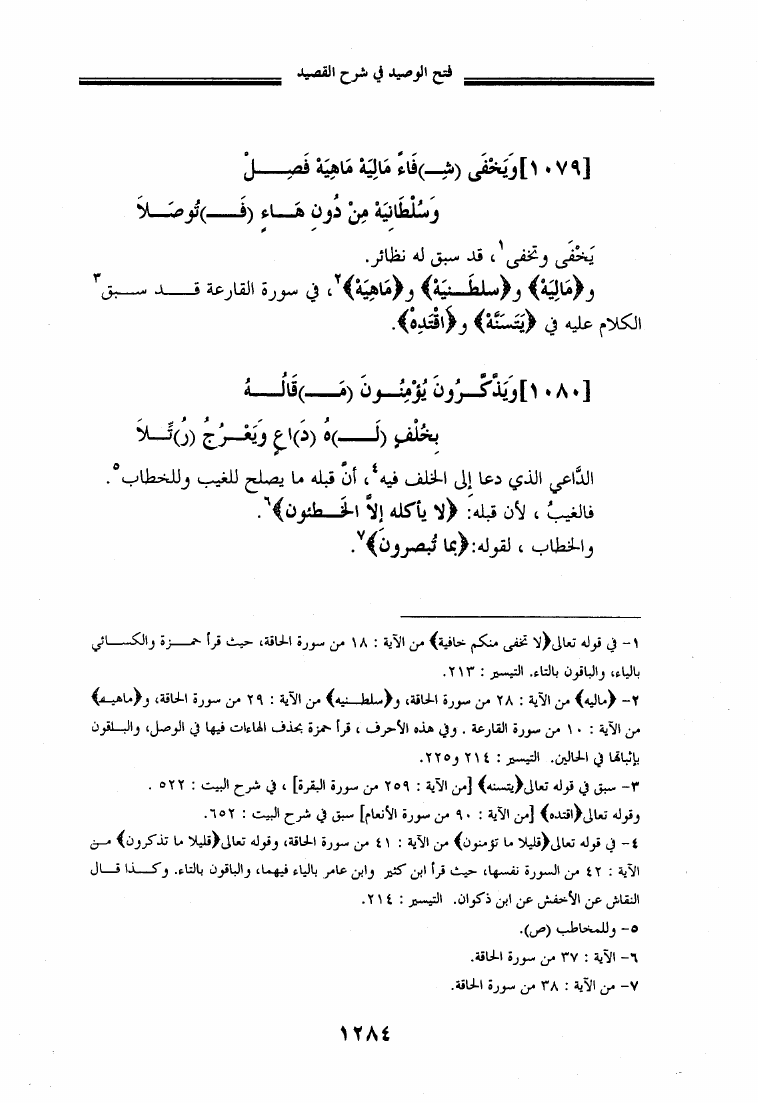 فتح الوصيد في شرح القصيد
[١٠٧٩] وَيَخْفَى (شِـ)فَاءً مَالِيَهْ مَاهِيَهْ فَصِلْ
وَسُلْطَانِيَهْ مِنْ دُونِ هَاءٍ (فَـ)تُوصَلاَ
يَخْفَى وتخفى١، قد سبق له نظائر.
و﴿مَالِيَهْ﴾ و﴿سلطَـنيَهْ﴾ و﴿مَاهِيَهْ﴾٢، في سورة القارعة قد سبق٣
الكلام عليه في ﴿يَتَسَنَّهْ﴾ و﴿اقْتَدِهْ﴾.
[١٠٨٠] وَيَذَّكَّرُونَ يُؤْمِنُونَ (مَـ)قَالُهُ
بِخُلْفٍ (لَـ)هُ (دَ)اعٍ وَيَعْرُجُ (رُ)تِّلاَ
الدَّاعي الذي دعا إلى الخلف فيه٤، أنَّ قبله ما يصلح للغيب وللخطاب٥.
فالغيبُ ، لأن قبله: ﴿لا يأكله إلاَّ الخَـطئون﴾٦.
والخطاب ، لقوله:﴿بما تُبصرونَ﴾٧.
١- في قوله تعالى﴿لا تخفى منكم خافية﴾ من الآية : ١٨ من سورة الحاقة، حيث قرأ حمزة والكسائي
بالياء، والباقون بالتاء. التيسير : ٢١٣.
٢- ﴿ماليه﴾ من الآية : ٢٨ من سورة الحاقة، و﴿سلطـنيه﴾ من الآية : ٢٩ من سورة الحاقة، و﴿ماهيه﴾
من الآية : ١٠ من سورة القارعة . وفي هذه الأحرف ، قرأ حمزة بحذف الهاءات فيها في الوصل، والباقون
بإثباتها في الحالين. التيسير : ٢١٤ و٢٢٥.
٣- سبق في قوله تعالى﴿يتسنه﴾ [من الآية : ٢٥٩ من سورة البقرة] ، في شرح البيت : ٥٢٢ .
وقوله تعالى﴿اقتده﴾ [من الآية : ٩٠ من سورة الأنعام] سبق في شرح البيت : ٦٥٢.
٤- في قوله تعالى﴿قليلا ما تؤمنون﴾ من الآية : ٤١ من سورة الحاقة، وقوله تعالى﴿قليلا ما تذكرون﴾ من
الآية : ٤٢ من السورة نفسها، حيث قرأ ابن كثير وابن عامر بالياء فيهما، والباقون بالتاء. وكذا قال
النقاش عن الأخفش عن ابن ذكوان. التيسير : ٢١٤.
٥- وللمخاطب (ص).
٦- الآية : ٣٧ من سورة الحاقة.
٧- من الآية : ٣٨ من سورة الحاقة.
١٢٨٤